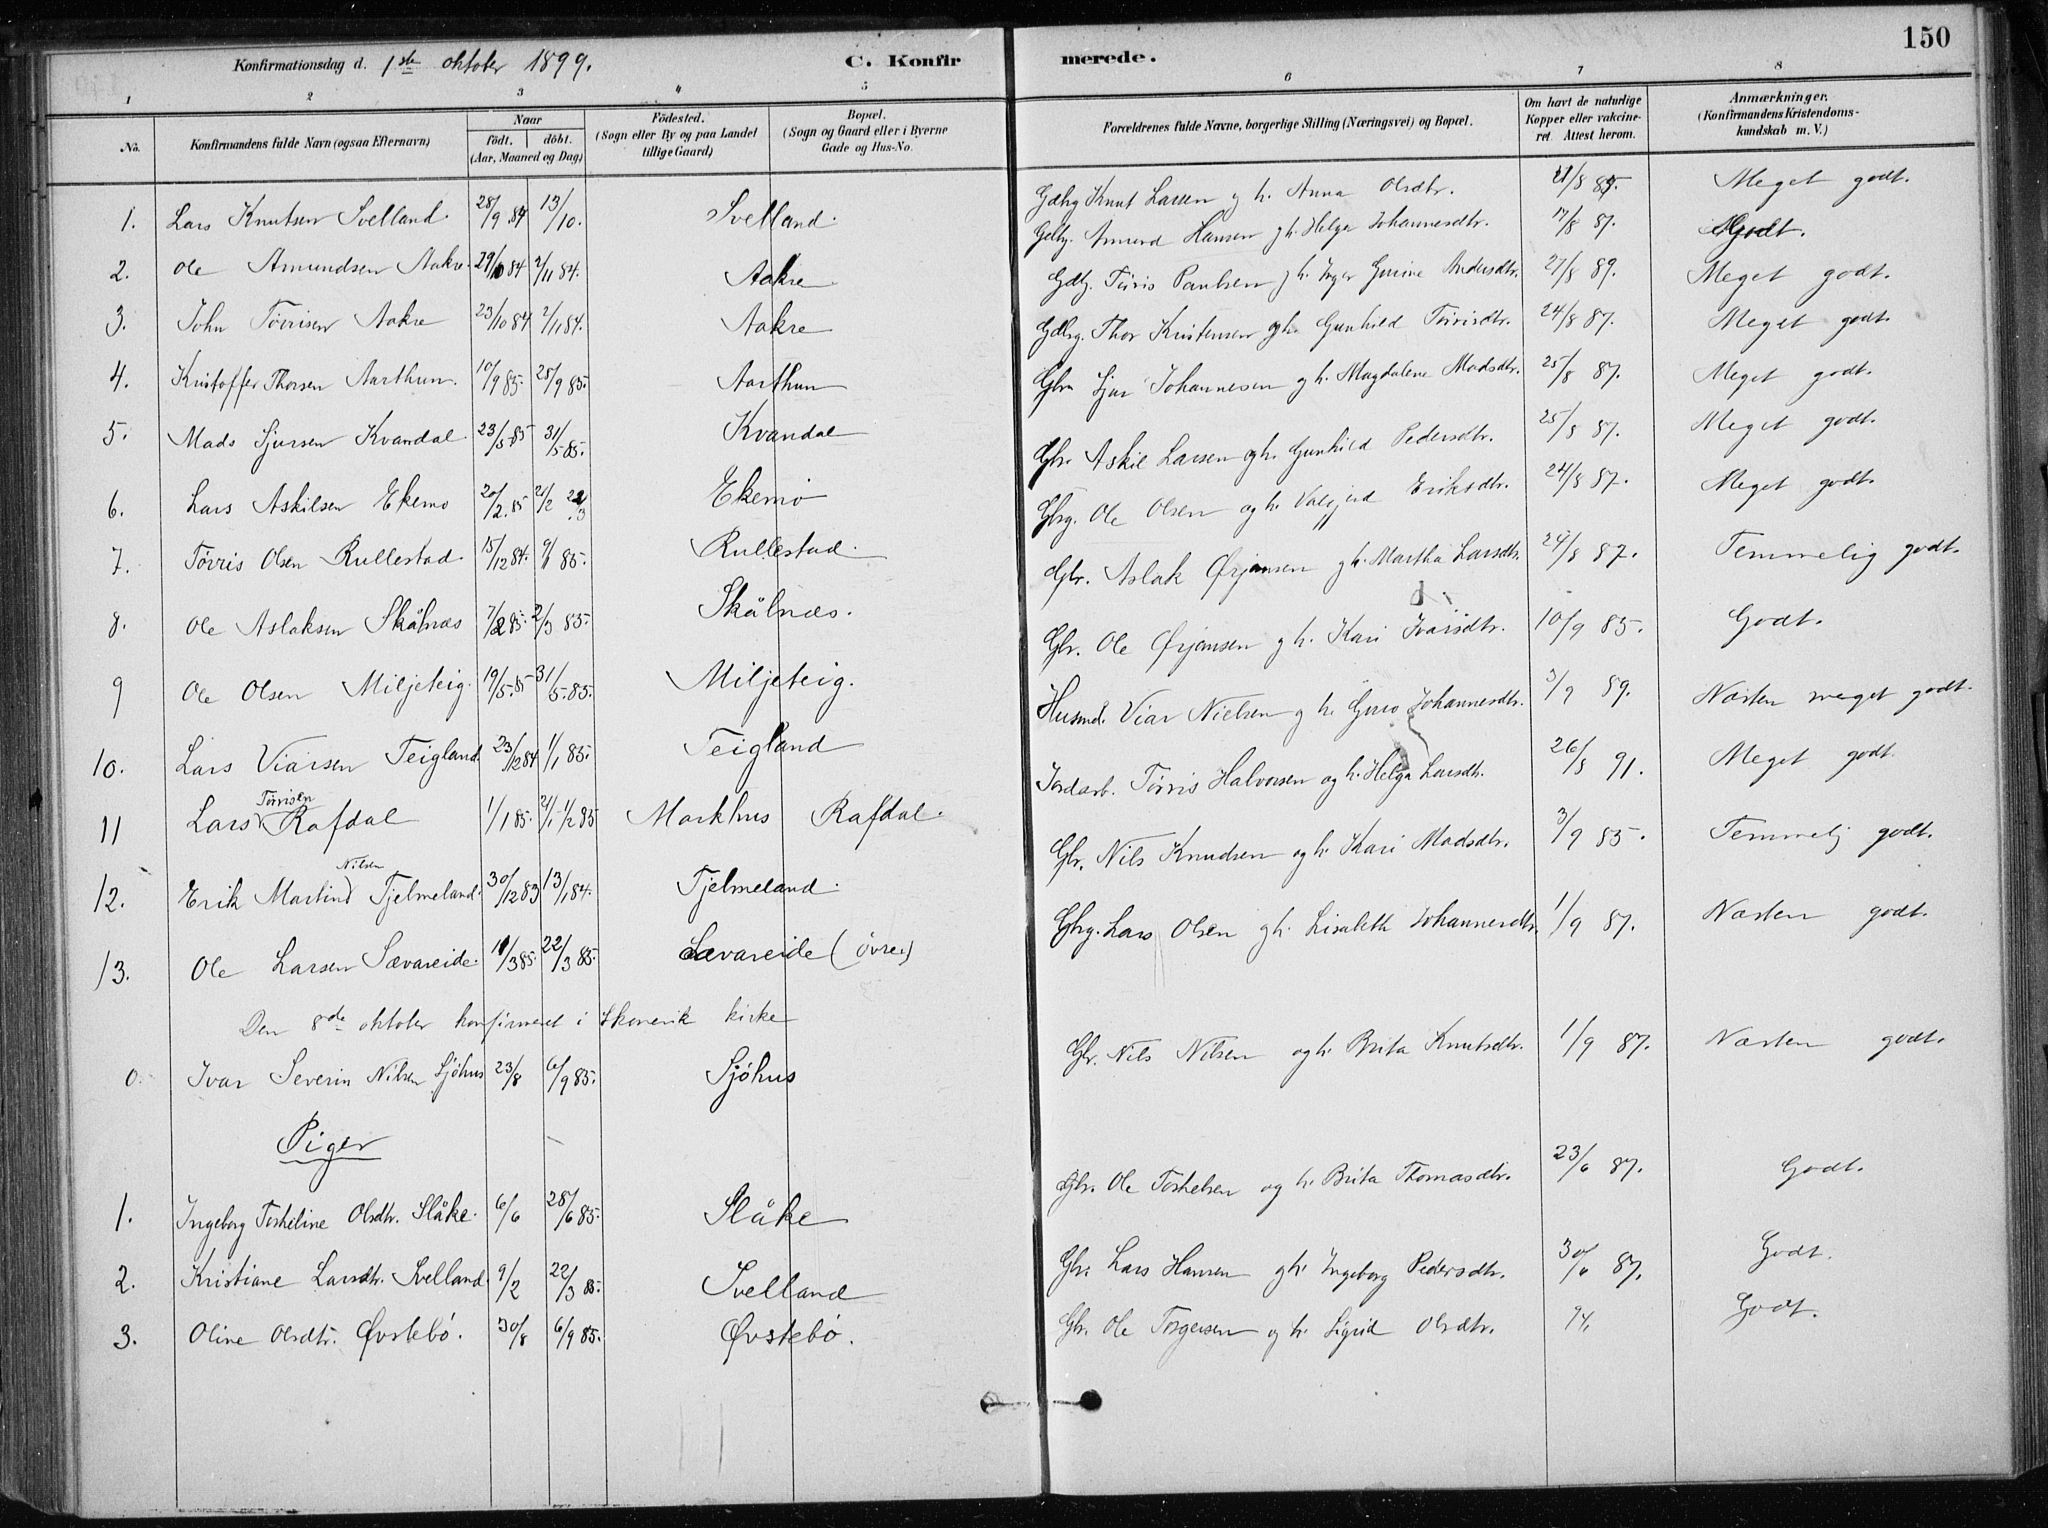 150
Konfirmationsdag d. 1ste oktober 1899. C. Konfirmerede.
1 2 3 4 5 6 7 8
No. Konfirmandens fulde Navn (ogsaa Efternavn) Naar født. døbt. (Aar, Maaned og Dag) Fødested. (Sogn eller By og paa Landet tillige Gaard) Bopæl. (Sogn og Gaard eller i Byerne Gade og Hus-No. Forældrenes fulde Navne, borgerlige Stilling (Næringsvei) og Bopæl. Om havt de naturlige Kopper eller vakcineret. Attest herom. Anmærkninger, (Konfirmandens Kristendomskundskab m. V.)
1. Lars Knutsen Svelland. 28/9 84 13/10. Svelland. Gdbrg Knut Larsen g h. Anna Olsdtr. 21/8 85. Meget godt.
2. Ole Amundsen Aakre. 29/10 84 2/11 84. Aakre Gdbg. Amund Hansen g h. Helga Johannesdtr. 17/8 87. Godt.
3. John Tørrisen Aakre 23/10 84 2/11 84. Aakre Gdbg. Tørris Paulsen g h. Inger Gurine Andersdtr. 27/8 89. Meget godt.
4. Kristoffer Thorsen Aarthun. 10/9 85. 25/9 85. Aarthun Gdbrg. Thor Kristensen og h. Gunhild Tørrisdtr. 24/8 87. Meget godt.
5. Mads Sjursen Kvandal 23/5 85 31/5 85. Kvandal Gbr. Sjur Johannesen g h. Magdalene Madsdtr. 25/8 87. Meget godt.
6. Lars Askilsen Ekemo 20/2 85 21/2 22/3 Ekemo Gbr. Askil Larsen og h. Gunhild Pedersdtr. 25/8 87. Meget godt.
7. Tørris Olsen Rullestad. 15/12 84. 9/1 85. Rullestad. Gbrg. Ole Olsen og h. Valgjerd Eriksdtr. 24/8 87. Meget godt.
8. Ole Aslaksen Skålnæs 7/2 85. 2/3 85. Skålnæs. Gbr. Aslak Ørjansen g h. Martha Larsdtr. 24/8 87. Temmelig godt.
9 Ole Olsen Miljeteig. 19/5 85 31/5 85. Miljeteig. Gbr. Ole Ørjansen g h. Kari Ivarsdtr. 10/9 85. Godt.
10. Lars Viarsen Teigland. 23/12 84 1/1 85. Teigland Husmd. Viar Nielsen g h. Guro Johannesdtr. 3/9 89. Næsten meget godt.
11 Lars Tørrisen Rafdal 1/1 85. 21/1 1/2 85 Markhus Rafdal. Jordarb. Tørris Halvorsen og h. Helga Larsdtr. 26/8 91. Meget godt.
12. Erik Martin Nilsen Tjelmeland. 30/12 83 13/1 84. Tjelmeland. Gbr. Nils Knudsen og h. Kari Madsdtr. 3/9 85. Temmelig godt.
13. Ole Larsen Sævareide. 11/3 85. 22/3 85. Sævareide (øvre) Gbrg. Lars Olsen g h. Lisabeth Johannesdtr. 1/9 87. Næsten godt.
Den 8de oktober konfirmeret i Skonevik kirke
0. Ivar Severin Nilsen Sjöhus 23/8 6/9 85. Sjöhus Gbr. Nils Nilsen og h. Brita Knutsdtr. 1/9 87. Næsten godt.
Piger
1. Ingeborg Torkeline Olsdtr. Slåke. 6/6 28/6 85. Slåke Gbr. Ole Torkelsen og h. Brita Thomasdtr. 23/6 87. Godt.
2. Kristiane Larsdtr. Svelland. 9/2 22/3 85. Svelland Gbr. Lars Hansen g h. Ingeborg Pedersdtr. 30/6 87. Godt.
3. Oline Olsdtr. Øvstebö. 30/8 6/9 85. Øvstebö. Gbr. Ole Torgersen og h. Sigrid Olsdtr. 94. Godt.